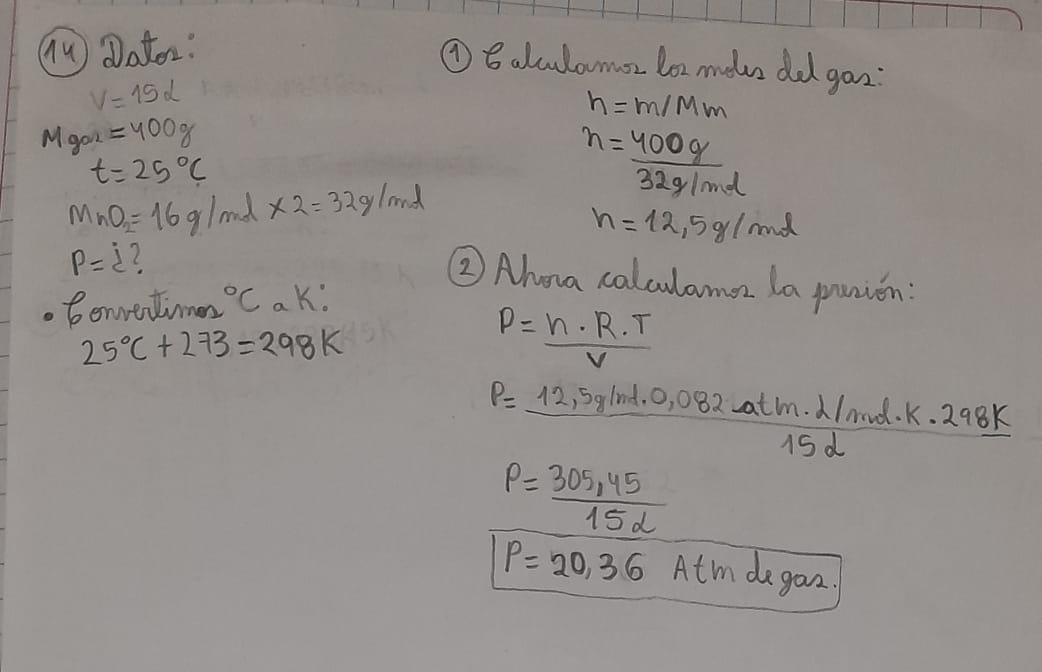 14 Datos:
V=15L
Mgas=400g
t=25°C
MmO₂=16g/mol×2=32g/mol
P=¿?
• Convertimos °C a K:
25°C+273=298K
① Calculamos los moles del gas:
n=m/Mm
n=400g
32g/mol
n=12,5g/mol
② Ahora calculamos la presión:
P=n.R.T
V
P=12,5g/mol.0,082 atm.L/mol.K.298K
15L
P=305,45
15L
P=20,36 Atm de gas.